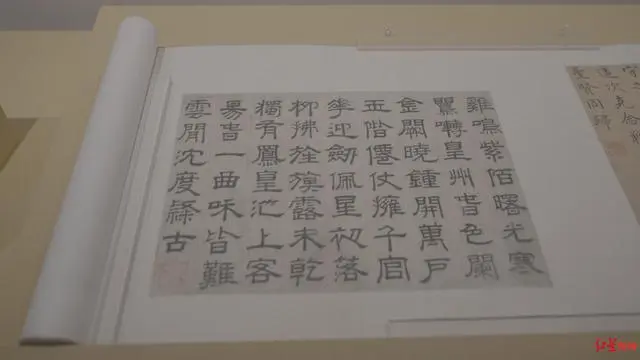 雞鳴紫陌曙光寒
鸎囀皇州旾色闌
金闕曉鍾開萬戶
玉階僊仗擁千官
華迎劒佩星初落
柳拂旌旗露未乾
獨有鳳皇池上客
昜旾一曲咊皆難
雲間沈度隸古